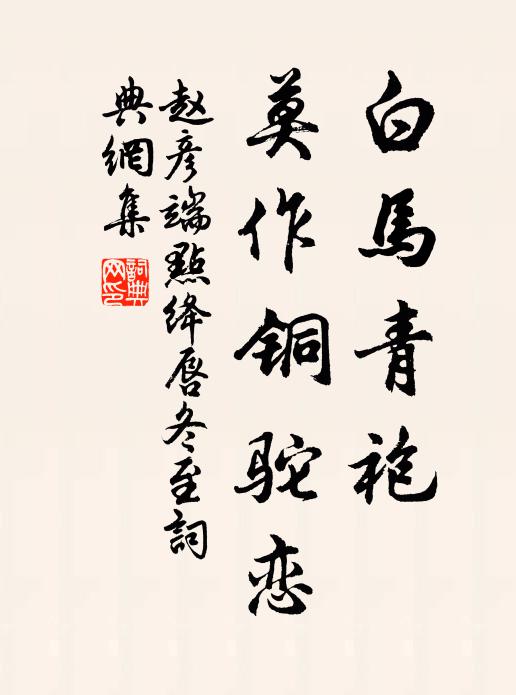 白馬青袍
莫作铜驼恋
赵彦端點绛唇冬至詞
典網集
詞典
网印